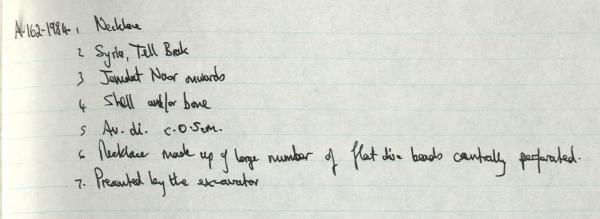 A-162-1984. 1 Necklace
2 Syria, Tell Brak
3 Jemdat Nasr onwards
4 Shell and/or bone
5 Av. di. c.0.5cm.
6 Necklace made up of large number of flat disc beads centrally perforated.
7. Presented by the excavator